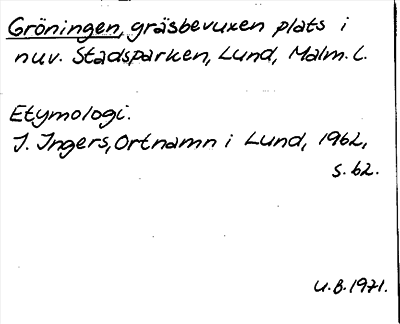 Gröningen, gräsbevuxen plats i
nuv. Stadsparken, Lund, Malm. L.
Etymologi.
J. Ingers, Ortnamn i Lund, 1962,
s. 62.
U.B. 1971.